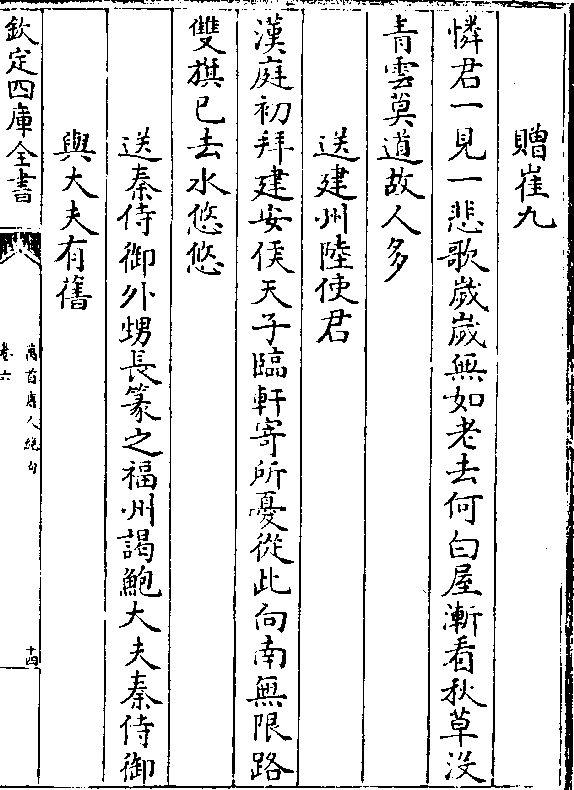 贈崔九
憐君一見一悲歌嵗嵗無如老去何白屋漸看秋草沒
青雲莫道故人多
送建州陸使君
漢庭初拜建安侯天子臨軒寄所憂從此向南無限路
雙旗已去水悠悠
送秦侍御外甥長篆之福州謁鮑大夫秦侍御
與大夫有舊
欽定四庫全書
萬首唐人絶句
卷六
十四